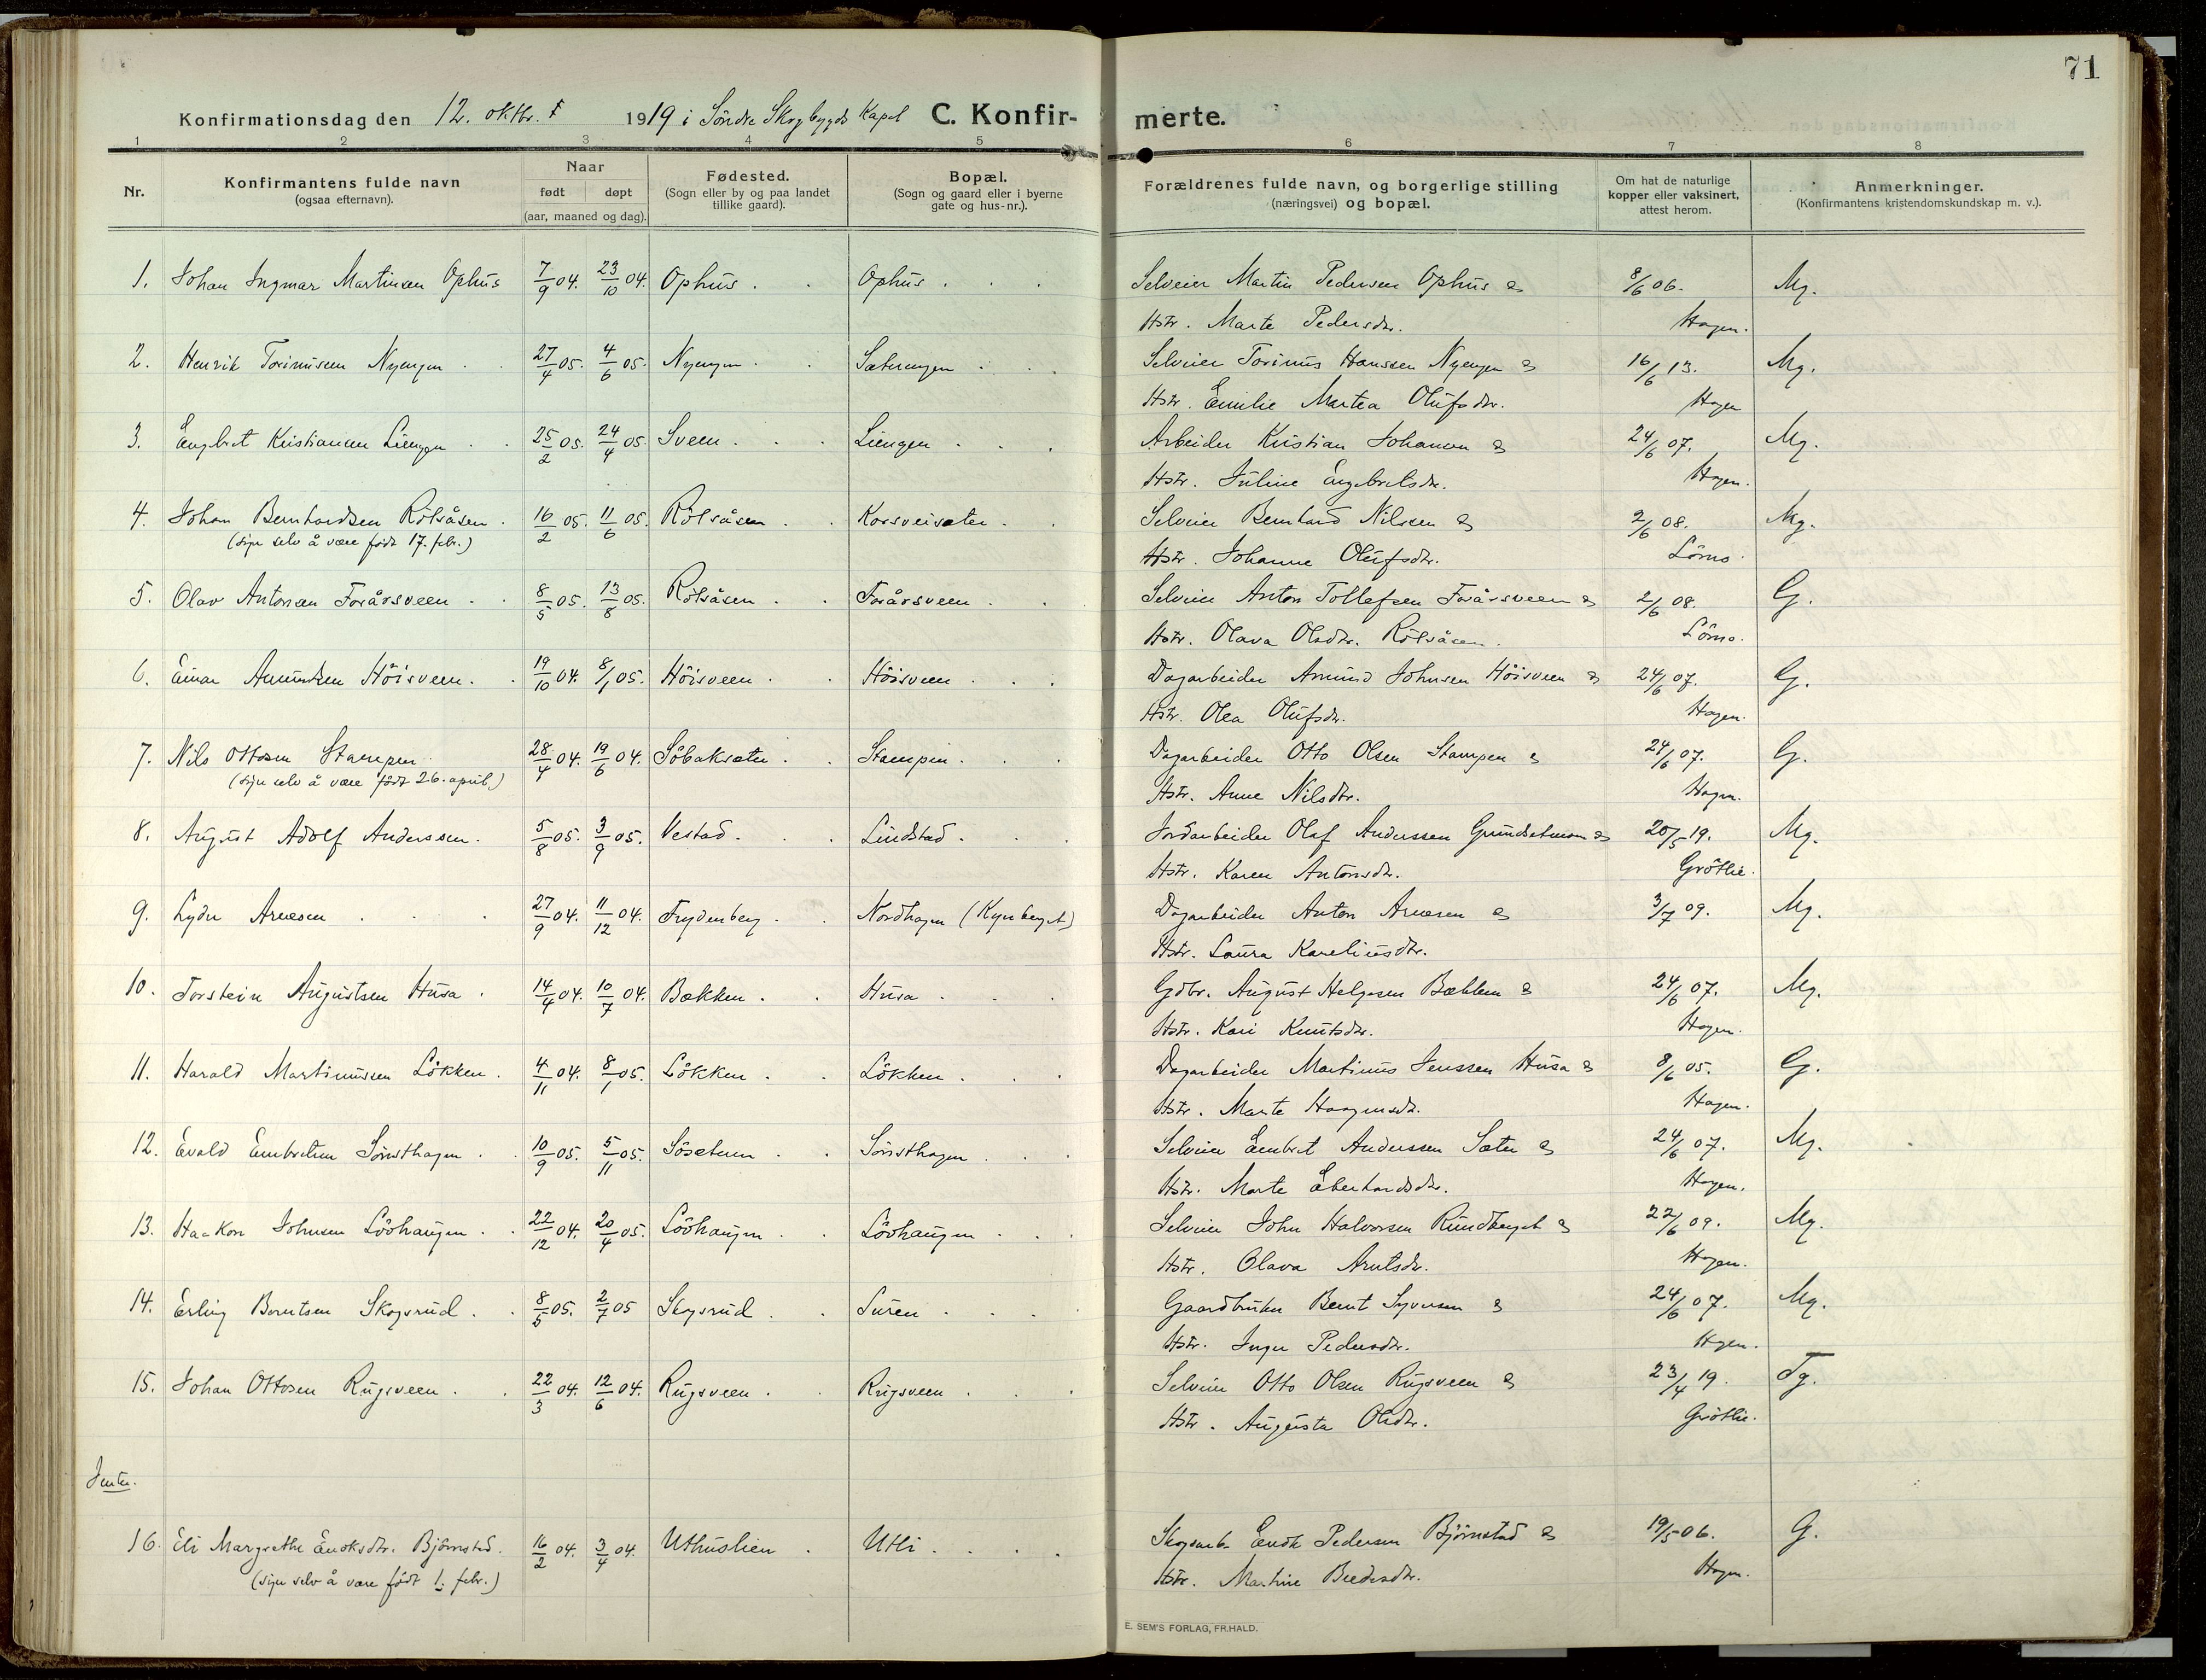 71
Konfirmationsdag den 12. oktbr. 1919 i Söndre Skogbygds Kapel C. Konfirmerte.
1 2 3 4 5 6 7 8
Nr. Konfirmantens fulde navn (ogsaa efternavn). Naar født døpt (aar, maaned og dag). Fødested. (Sogn eller by og paa landet tillike gaard). Bopæl. (Sogn og gaard eller i byerne gate og hus-nr.). Forældrenes fulde navn, og borgerlige stilling (næringsvei) og bopæl. Om hat de naturlige kopper eller vaksinert, attest herom. Anmerkninger. (Konfirmantens kristendomskundskap m. v.).
1. Johan Ingmar Martinsen Ophus 7/9 04. 23/10 04. Ophus. Ophus. Selveier Martin Pedersen Ophus & 8/6 06. Mg.
Hstr. Marte Pedersdtr. Hagen.
2. Henrik Torinusen Nyengen 27/4 05. 4/6 05. Nyengen Saterengen Selveier Torinus Hanssen Nyengen & 16/6 13. Mg.
Hstr. Emilie Martea Olufsdtr. Hagen
3. Engebret Kristiansen Liengen 25/2 05. 24/4 05. Sveen. Liengen Arbeider Kristian Johansen & 24/6 07. Mg.
Hstr. Juline Engebretsdtr. Hagen.
4. Johan Bernhardsen Rölsåsen 16/2 05. 11/6 05. Rölsåsen Korsveisæter Selveier Bernhard Nilssen & 2/6 08. Mg.
(sier selv å være født 17. febr.) Hstr. Johanne Olufsdtr. Lömo
5. Olav Antonsen Foråsveen 8/5 05. 13/8 05. Rölsåsen Foråsveen Selveier Anton Tollefsen Foråsveen & 2/6 08. G.
Hstr. Olava Olsdtr. Rölsåsen. Lömo.
6. Einar Amundsen Höisveen. 19/10 04. 8/1 05. Höisveen Höisveen Dagarbeider Amund Johnsen Höisveen & 24/6 07. G.
Hstr. Olea Olufsdtr. Hagen.
7. Nils Ottosen Stampen 28/4 04. 19/6 04. Söbaksæter Stampen Dagarbeider Otto Olsen Stampen & 24/6 07. G.
(sier selv å være født 26. april) Hstr. Anne Nilsdtr. Hagen.
8. August Adolf Anderssen. 5/8 05. 3/9 05. Vestad. Lindstad. Jordarbeider Olaf Anderssen Grundsetmoen & 20/5 19. Mg.
Hstr. Karen Antonsdtr. Gröttlie.
9. Lyder Arnesen 27/9 04. 11/12 04. Frydenberg Nordhagen (Kynberget) Dagarbeider Anton Arnesen & 3/7 09. Mg.
Hstr. Laura Kareliusdtr.
10. Torstein Augustsen Husa 14/4 04. 10/7 04. Bækken Husa Gdbr. August Helgesen Bækken & 24/6 07. Mg.
Hstr. Kari Knutsdtr. Hagen.
11. Harald Martinussen Lökken 4/11 04. 8/1 05. Lökken Lökken Dagarbeider Martinus Jenssen Husa & 8/6 05. G.
Hstr. Marte Haagensdtr. Hagen.
12. Evald Embretsen Sörsthagen 10/9 05. 5/11 05. Sösetuen Sörsthagen Selveier Embret Anderssen Sæter & 24/6 07. Mg.
Hstr. Marte Eberhardsdtr. Hagen.
13. Haakon Johnsen Lövhaugen 22/12 04. 20/4 05. Lövhaugen Lövhaugen Selveier John Halvorsen Rundberget & 22/6 09. Mg.
Hstr. Olava Arntsdtr. Hagen.
14. Erling Berntsen Skogsrud 8/5 05. 2/7 05 Skogsrud Suren Gaardbruker Bernt Syversen & 24/6 07. Mg.
Hstr. Inger Pedersdtr. Hagen.
15. Johan Ottosen Rugsveen 22/3 04. 12/6 04. Rugsveen Rugsveen Selveier Otto Olsen Rugsveen & 23/4 19. Tg.
Hstr. Augusta Olsdtr. Gröttlie.
Jenter.
16. Eli Margrethe Enoksdtr. Björnstad. 16/2 04. 3/4 04. Uthuslien Utli Skogsarb. Enok Pedersen Björnstad & 19/5 06. G.
(sier selv å være født 1. febr.) Hstr. Martine Bredesdtr. Hagen.
E. SEM'S FORLAG, FR.HALD.